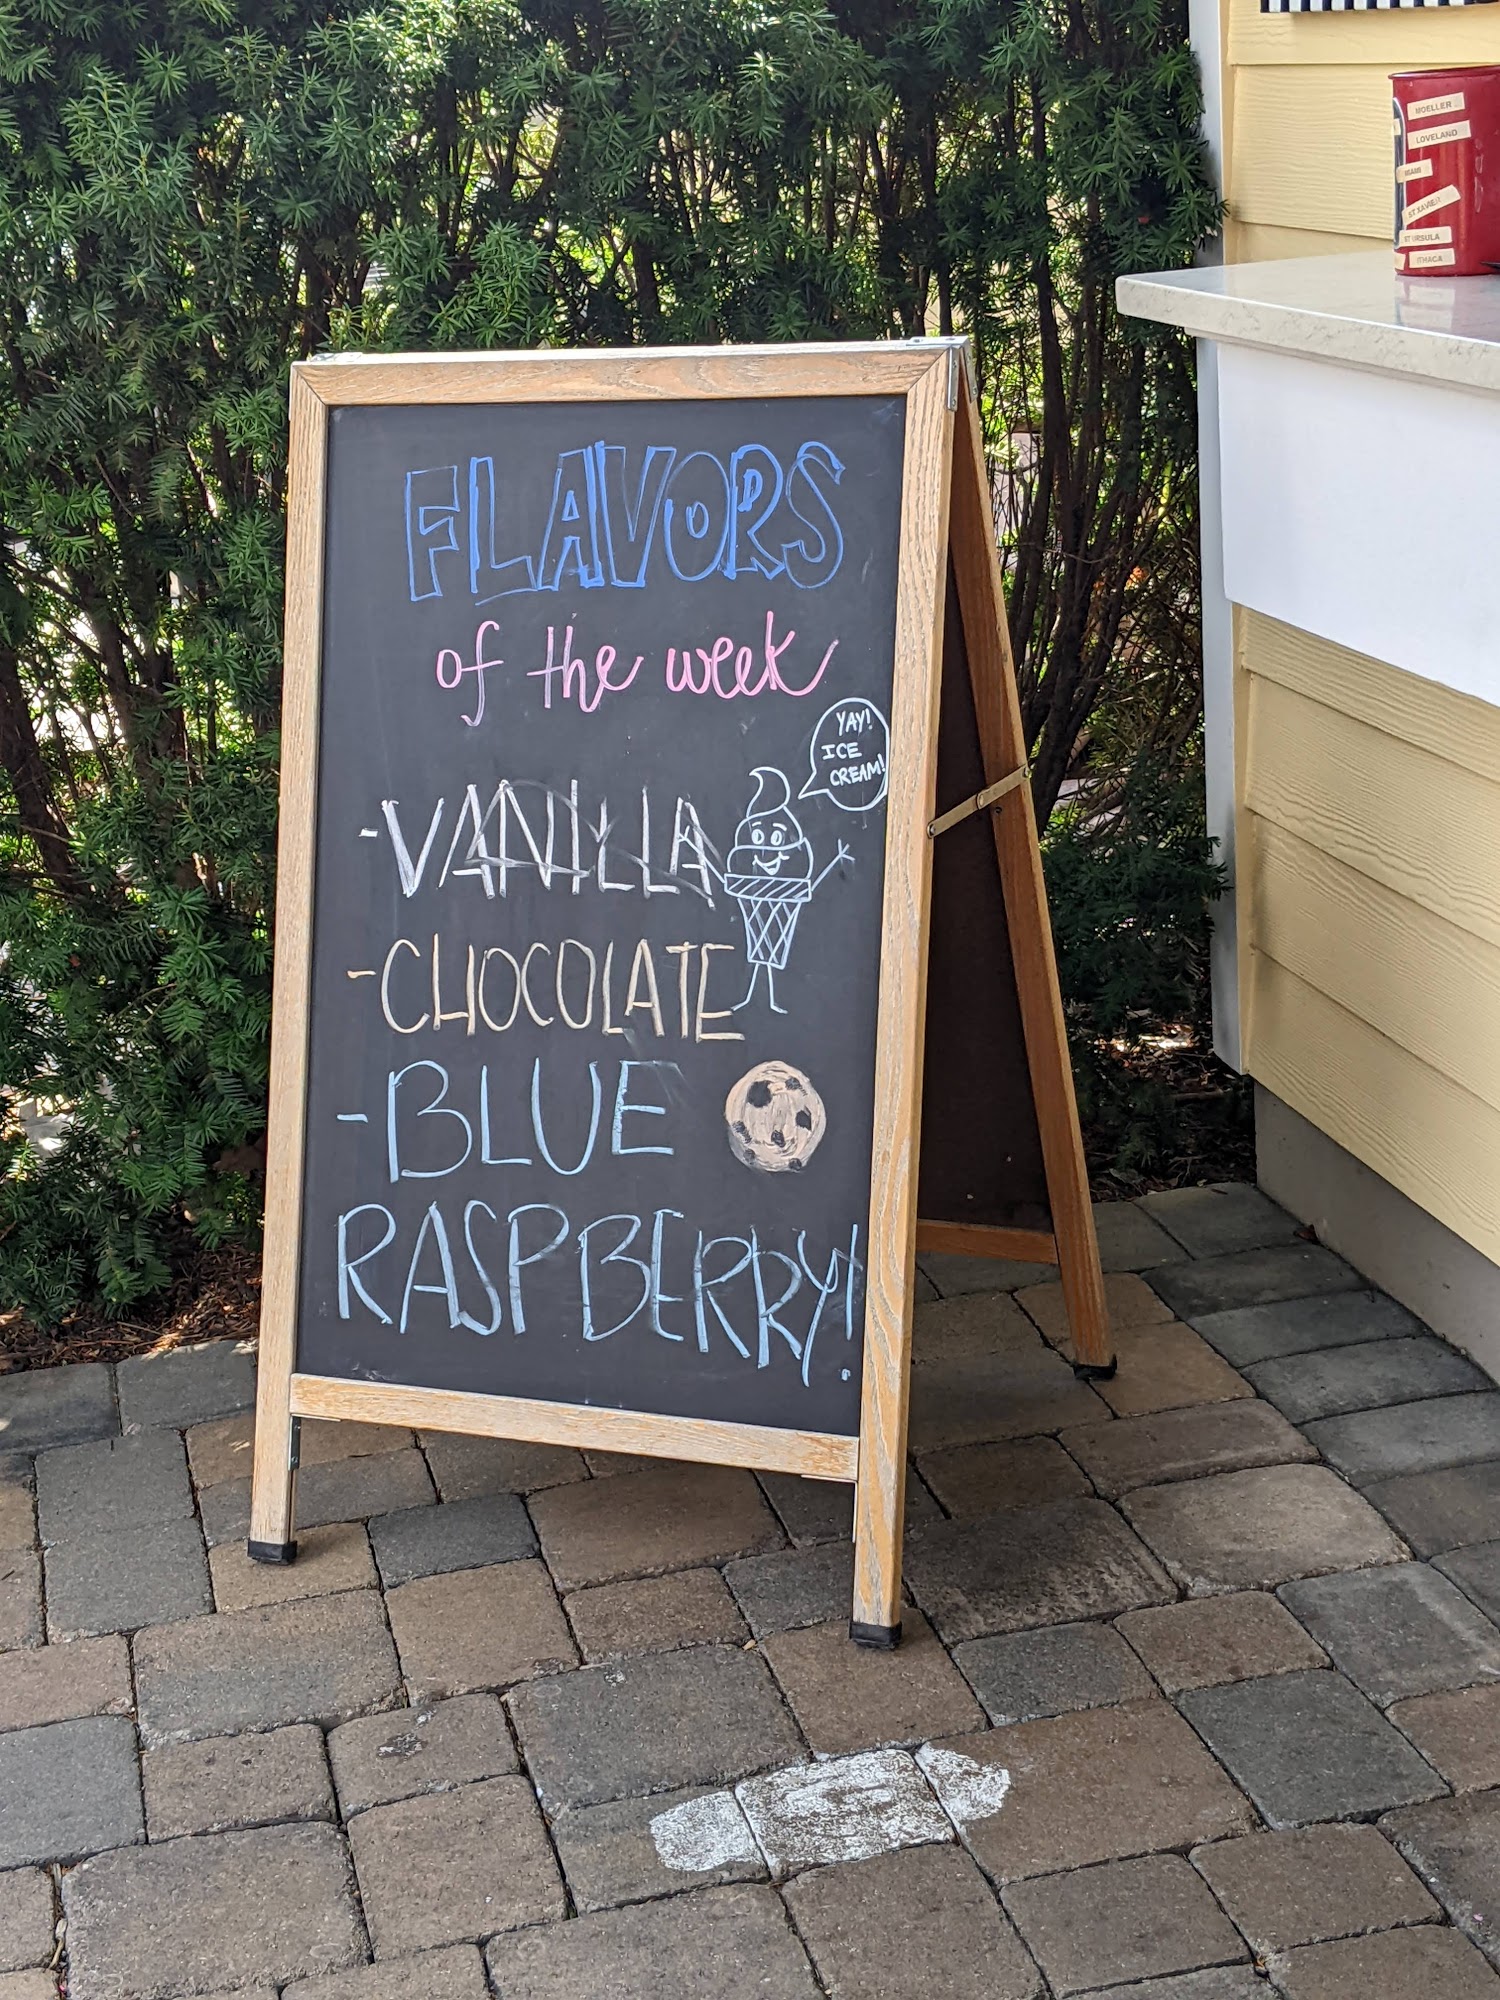 FLAVORS
of the week
YAY!
ICE
CREAM!
-VANILLA
-CHOCOLATE
-BLUE
RASPBERRY!
MOELLER
LOVELAND
MIAMI
ST XAVIER
ST URSULA
ITHACA